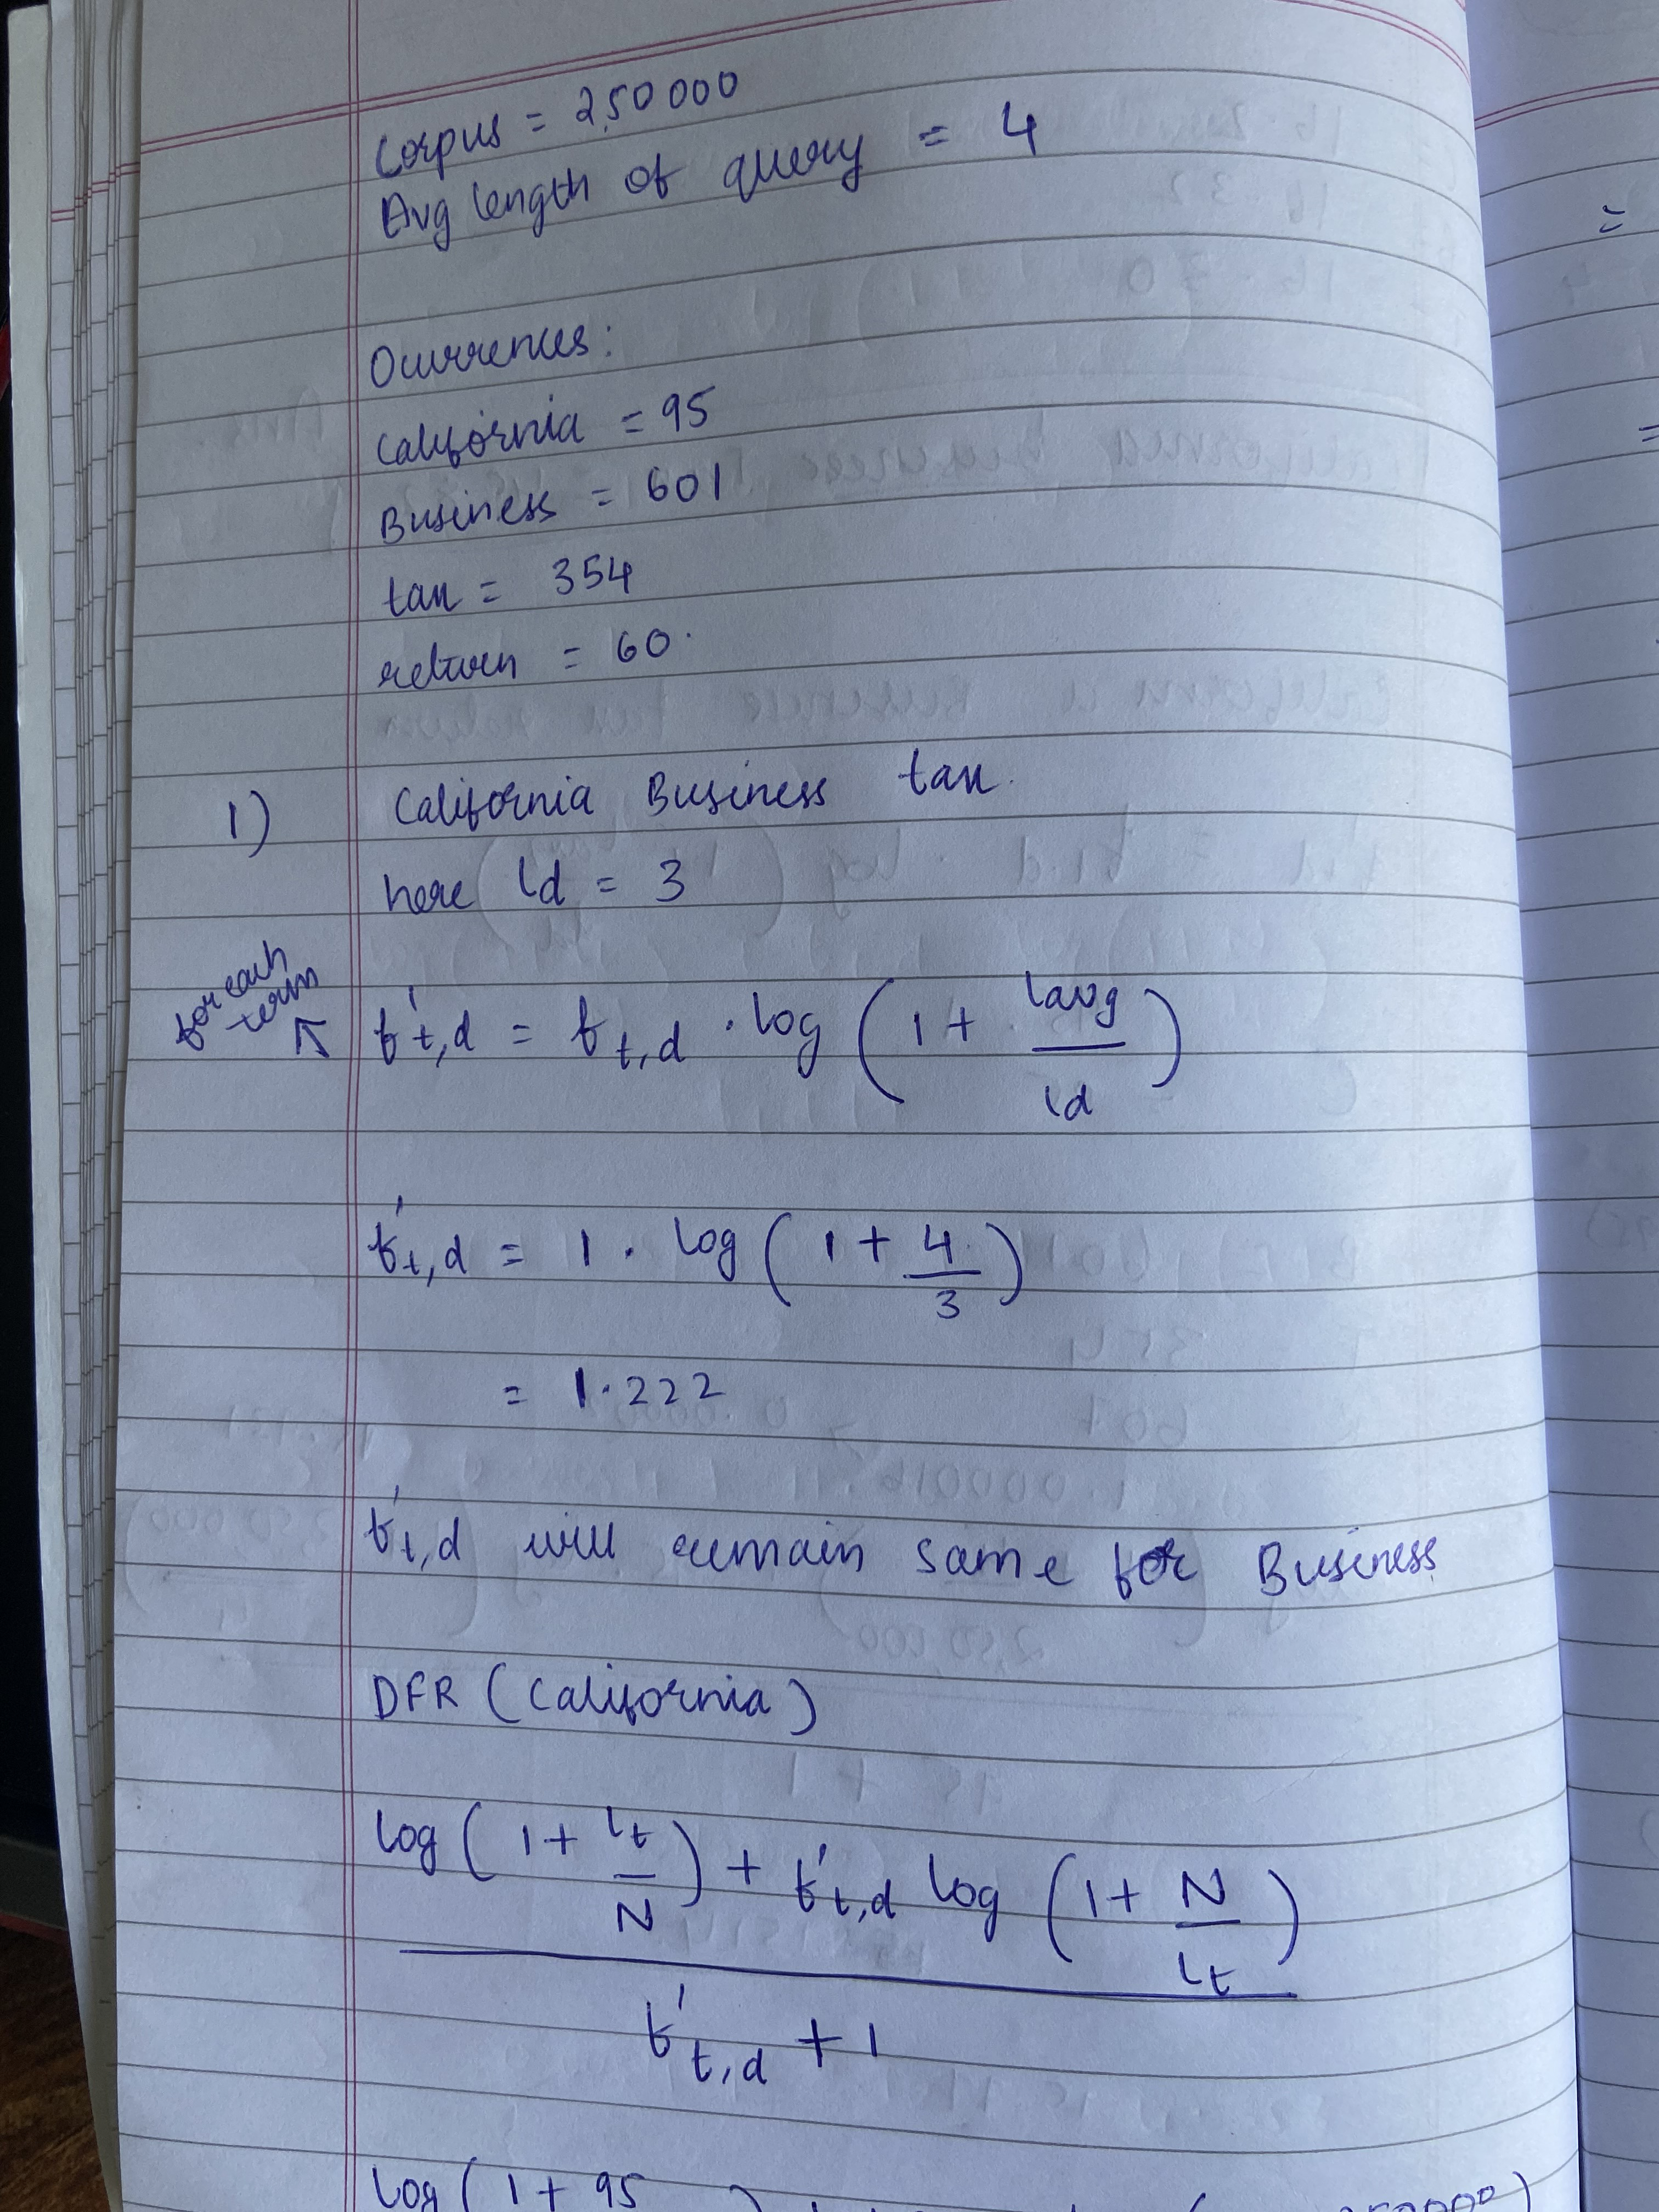 Corpus = 2,50 000
Avg length of query = 4
Ocurrences:
California = 95
Business = 601
tax = 354
return = 60.
1) California Business tax.
here ld = 3
for each term ↖ f't,d = ft,d · log (1 + lavg / ld)
f't,d = 1 · log (1 + 4 / 3)
= 1.222
f't,d will remain same for Business
DFR (California)
log (1 + lt / N) + f't,d log (1 + N / lt)
f't,d + 1
log (1 + 95